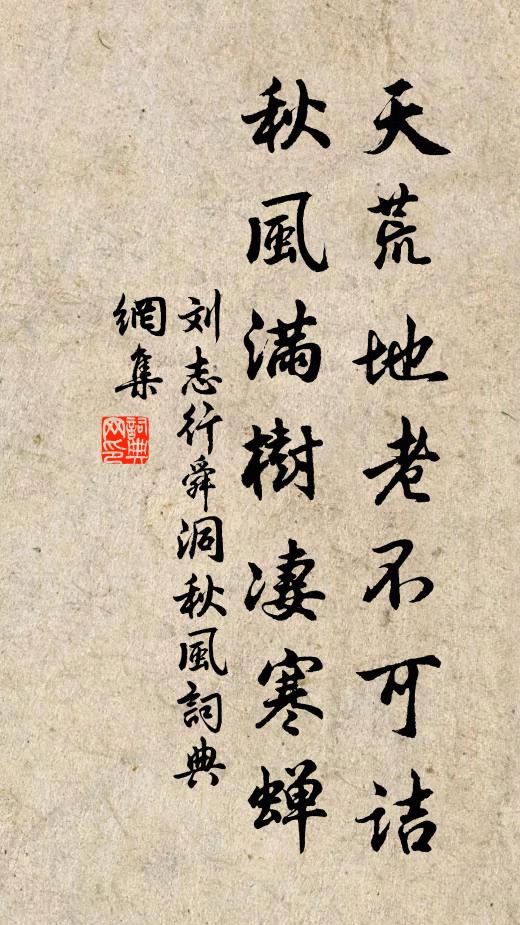 天荒地老不可诘
秋風满樹凄寒蝉
刘志行舜洞秋風詞典
網集
詞典
网印